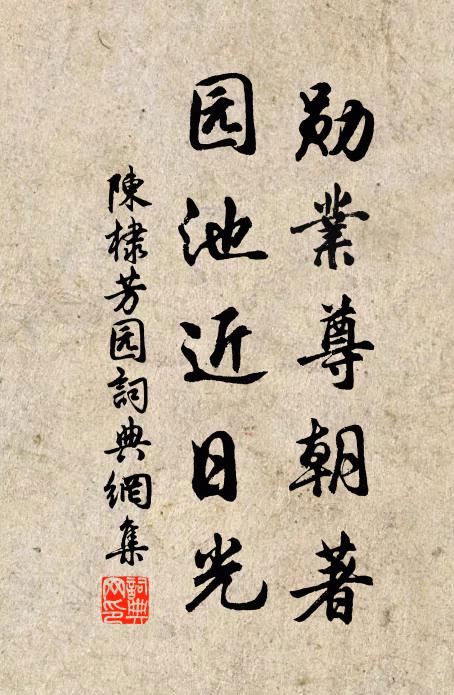 勋業尊朝著
园池近日光
陳棣芳园詞典網集
詞典网印